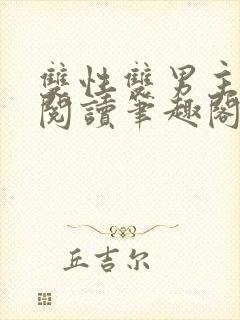 雙性雙男主
閱讀筆趣閣
丘吉尔